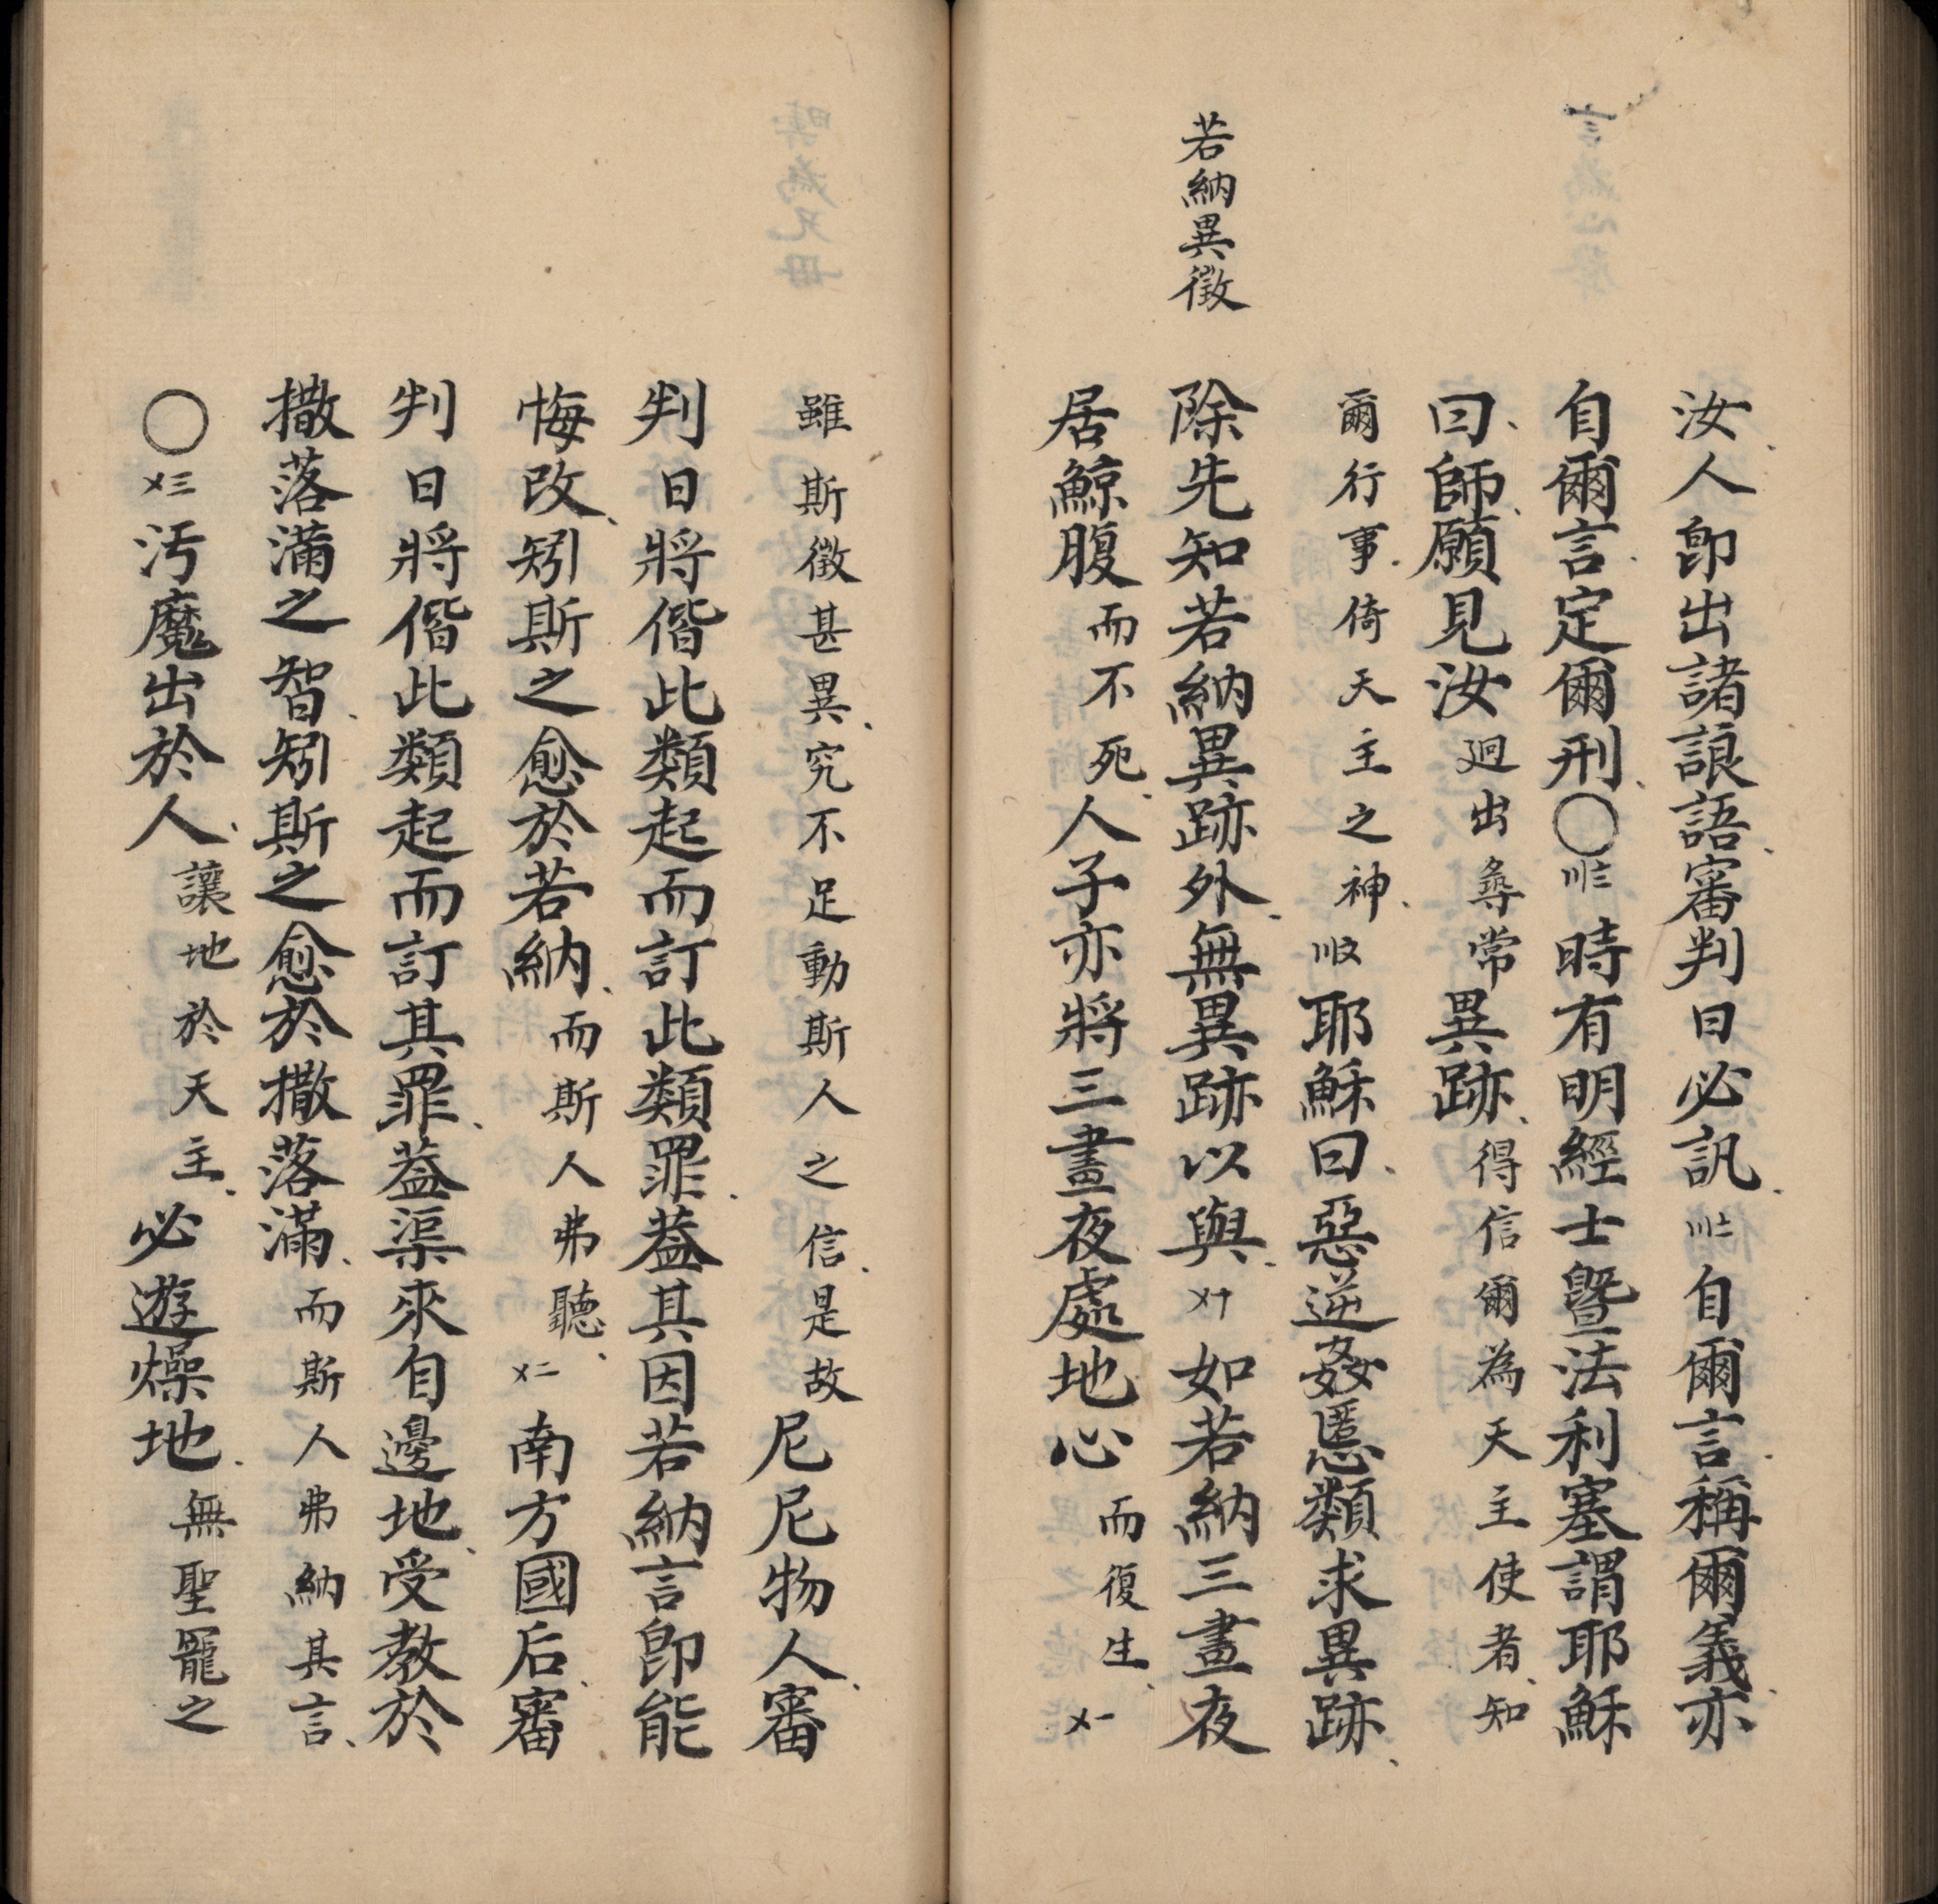 若納異徵
汝人卽出諸誏語、審判日必訊、〣〨自爾言、稱爾義、亦
自爾言、定爾刑、〇〣〨時有明經士暨法利塞謂耶穌
曰、師、願見汝廻出尋常異跡、得信爾為天主使者、知
爾行事、倚天主之神、〣〤耶穌曰、惡逆姦慝類求異跡、
除先知若納異跡外、無異跡以與、〤十如若納三晝夜
居鯨腹而不死、人子亦將三晝夜處地心而復生、〤一
雖斯徵甚異、究不足動斯人之信、是故尼尼物人、審
判日將偕此類起而訂此類罪、葢其因若納言卽能
悔改、矧斯之愈於若納、而斯人弗聽、〤二南方國后、審
判日將偕此類起而訂其罪、葢渠來自邊地、受教於
撒落滿之智、矧斯之愈於撒落滿、而斯人弗納其言、
〇〤三汚魔出於人、讓地於天主、必遊燥地、無聖寵之